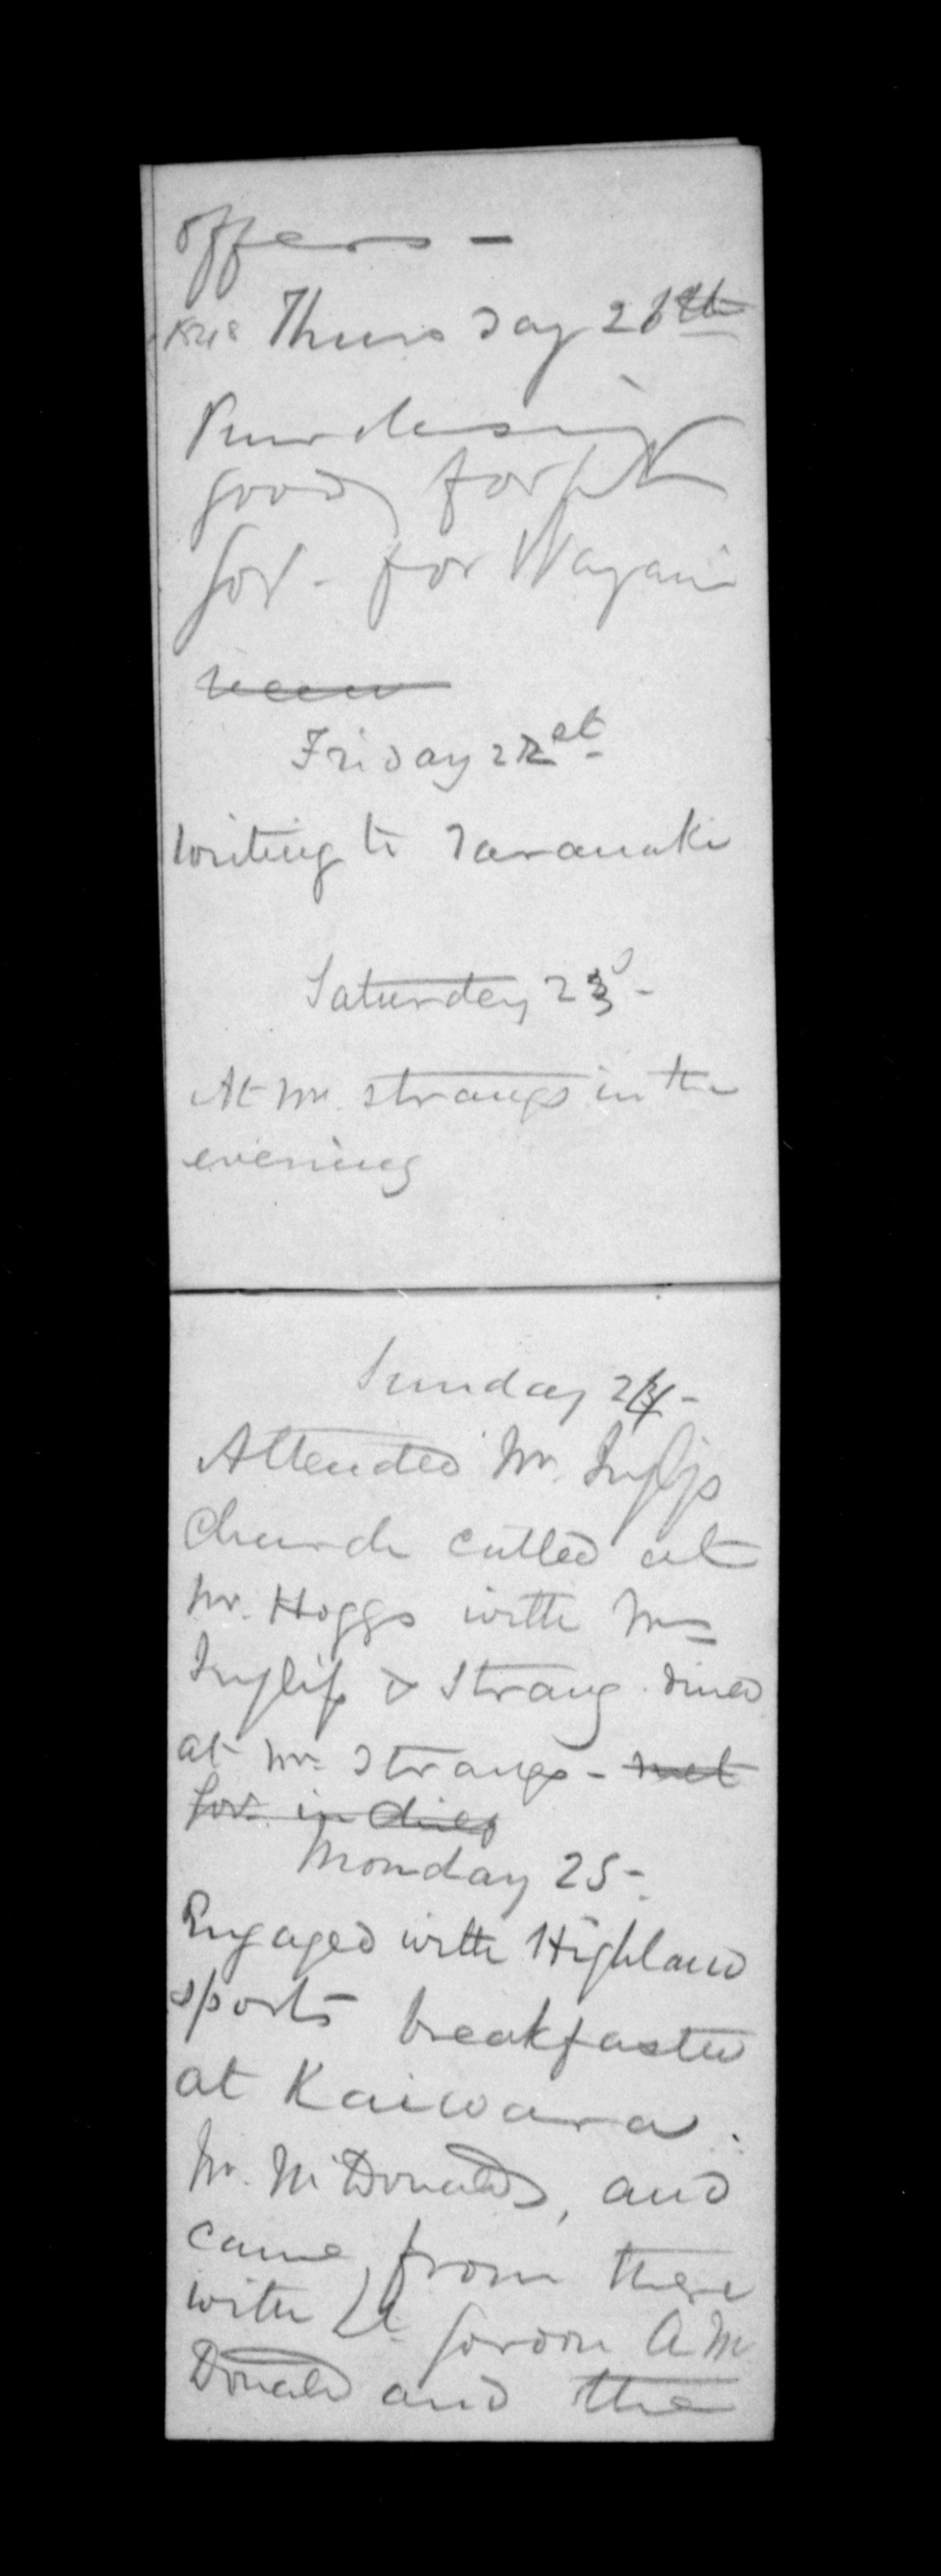 offers -
1848 Thursday 2
Purchasing
goods for the
Gov. for Wagani
Friday 22
writing to Taranaki
Saturday 23d -
At Mr. Strangs in the
evening
Sunday 24 -
Attended Mr. Inglis
Church called at
Mr. Hoggs with Mr
Inglis & Strang. dined
at Mr Strangs - met
Gov. in
Monday 25 -
Engaged with Highland
sports breakfasted
at Kaiwara.
Mr. McDonalds, and
came from there
with Lt Gordon A Mc
Donald and the